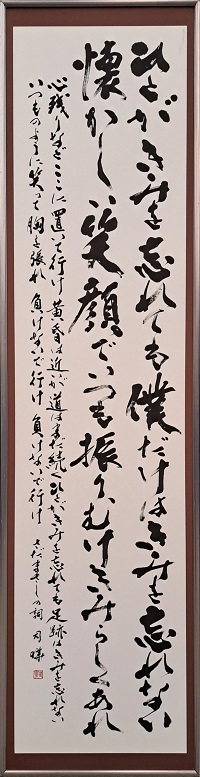 ひとがきみを忘れても僕だけはきみを忘れない
懐かしい笑顔でいつも振りむけきみらしくあれ
心残りなどここに置いて行け 黄昏は近いが道はまだ続くひとがきみを忘れても足跡はきみを忘れない
いつものように笑って胸を張れ 負けないで行け 負けないで行け さだまさしの詞